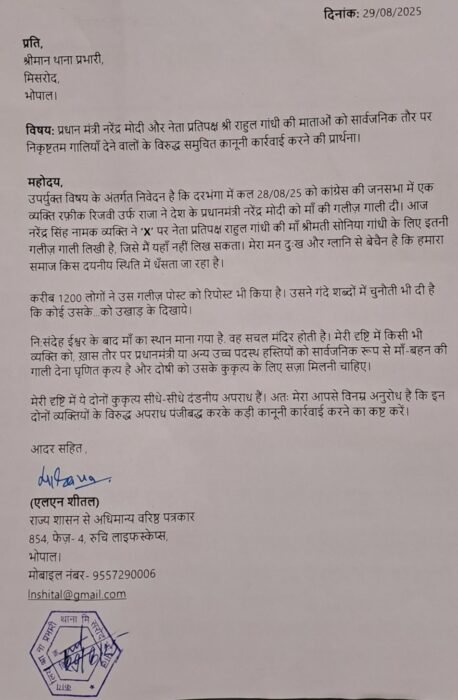 दिनांक: 29/08/2025
प्रति,
श्रीमान थाना प्रभारी,
मिसरोद,
भोपाल।
विषय: प्रधान मंत्री नरेंद्र मोदी और नेता प्रतिपक्ष श्री राहुल गांधी की माताओं को सार्वजनिक तौर पर
निकृष्टतम गालियाँ देने वालों के विरुद्ध समुचित क़ानूनी कार्रवाई करने की प्रार्थना।
महोदय,
उपर्युक्त विषय के अंतर्गत निवेदन है कि दरभंगा में कल 28/08/25 को कांग्रेस की जनसभा में एक
व्यक्ति रफ़ीक रिजवी उर्फ राजा ने देश के प्रधानमंत्री नरेन्द्र मोदी को माँ की गलीज़ गाली दी। आज
नरेंद्र सिंह नामक व्यक्ति ने 'X' पर नेता प्रतिपक्ष राहुल गांधी की माँ श्रीमती सोनिया गांधी के लिए इतनी
गलीज़ गाली लिखी है, जिसे मैं यहाँ नहीं लिख सकता। मेरा मन दुःख और ग्लानि से बेचैन है कि हमारा
समाज किस दयनीय स्थिति में धँसता जा रहा है।
करीब 1200 लोगों ने उस गलीज़ पोस्ट को रिपोस्ट भी किया है। उसने गंदे शब्दों में चुनौती भी दी है
कि कोई उसके...को उखाड़ के दिखाये।
नि:संदेह ईश्वर के बाद माँ का स्थान माना गया है. वह सचल मंदिर होती है। मेरी दृष्टि में किसी भी
व्यक्ति को, ख़ास तौर पर प्रधानमंत्री या अन्य उच्च पदस्थ हस्तियों को सार्वजनिक रूप से माँ-बहन की
गाली देना घृणित कृत्य है और दोषी को उसके कुकृत्य के लिए सज़ा मिलनी चाहिए।
मेरी दृष्टि में ये दोनों कुकृत्य सीधे-सीधे दंडनीय अपराध हैं। अतः मेरा आपसे विनम्र अनुरोध है कि इन
दोनों व्यक्तियों के विरुद्ध अपराध पंजीबद्ध करके कड़ी कानूनी कार्रवाई करने का कष्ट करें।
आदर सहित,
(एलएन शीतल)
राज्य शासन से अधिमान्य वरिष्ठ पत्रकार
854, फेज़- 4, रुचि लाइफस्केप्स,
भोपाल।
मोबाइल नंबर- 9557290006
lnshital@gmail.com